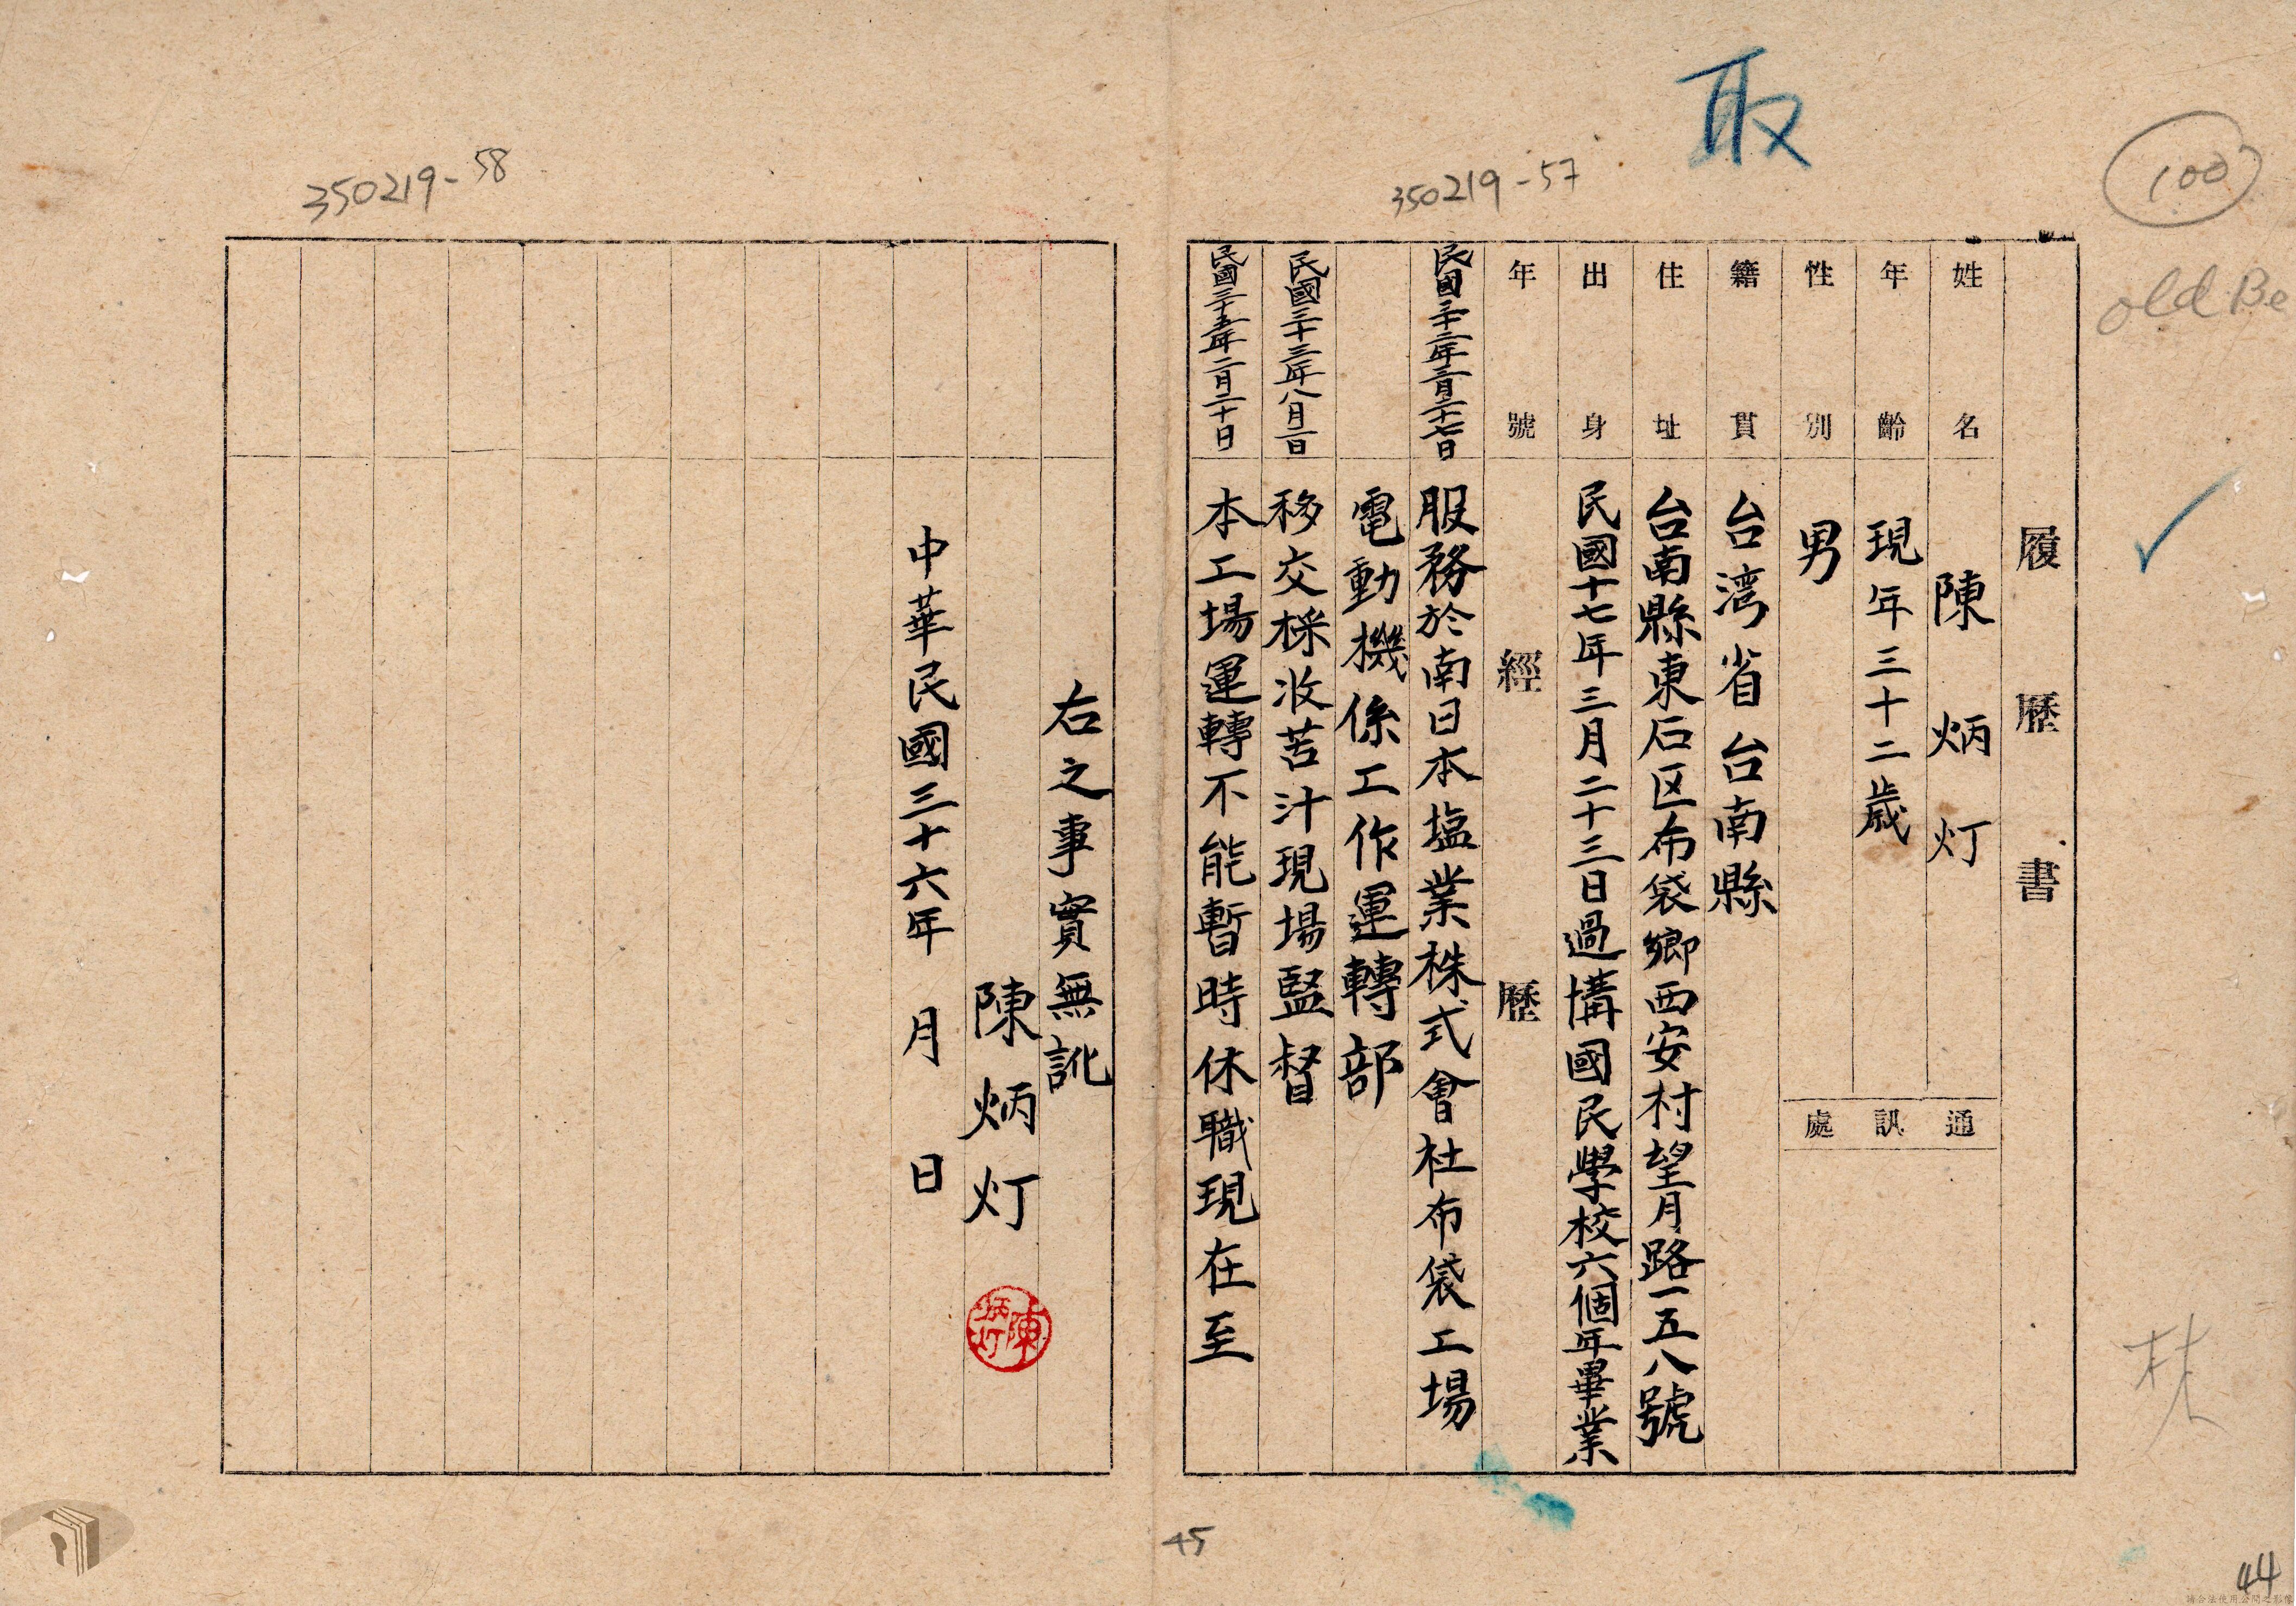 取
100
old Be
350219-57
350219-58
履歷書
姓名 陳炳灯
年齡 現年三十二歲
性別 男
通訊處
籍貫 台湾省台南縣
住址 台南縣東石区布袋鄉西安村望月路一五八號
出身 民國十七年三月二十三日過溝國民學校六個年畢業
年號 經歷
民國三十二年三月二十七日 服務於南日本塩業株式會社布袋工場
電動機係工作運轉部
民國三十三年八月一日 移交採收苦汁現場監督
民國三十五年二月二十日 本工場運轉不能暫時休職現在至
右之事實無訛
陳炳灯
陳炳灯
中華民國三十六年 月 日
林
45
44